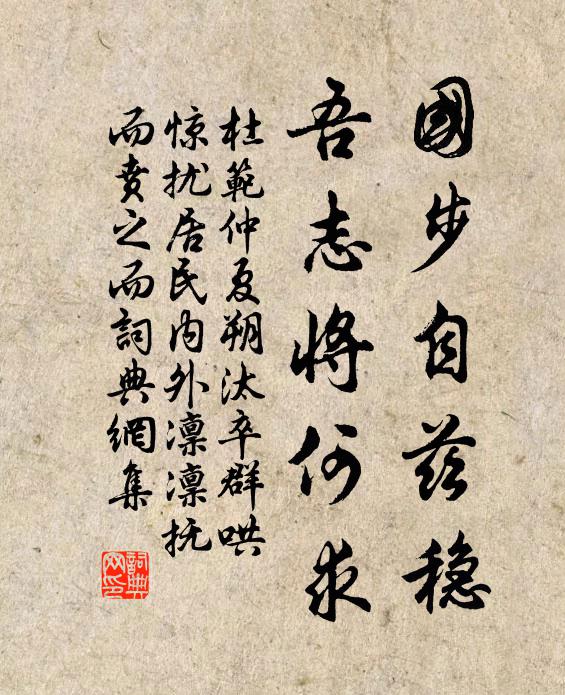 國步自茲穏
吾志將何求
杜範仲夏朔汰卒群哄
惊扰居民内外凛凛抚
而赉之而詞典網集
詞典網印